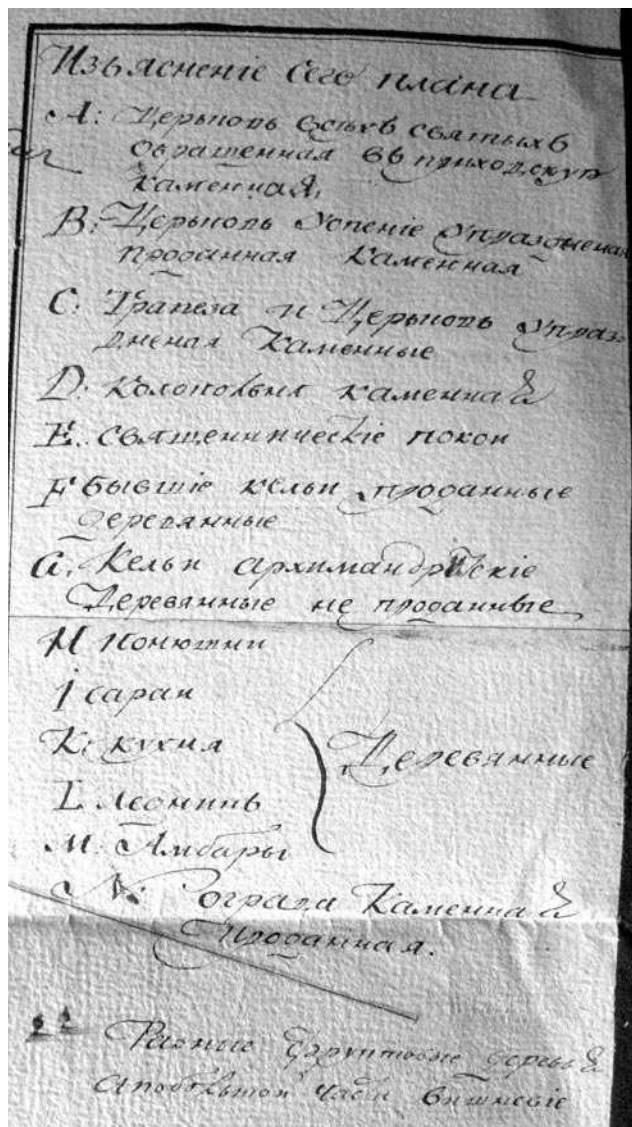 Изъясненіе сего плана
А: Церьковь всѣхъ святыхъ
обращенная въ приходскую
каменная,
B: Церьковь Успеніе упраздненая
проданная каменная
C: Трапеза и Церьковь упраз
дненая Каменные
D. колокольня каменная
E. священническіе покои
F бывшіе кельи проданные
деревянные
G. Кельи архимандрическіе
Деревянные не проданные
H конюшни
I сараи
K: кухня
Деревянные
L ледникъ
M. Амбары
N: ограда Каменная
Проданная.
Разные фруктовые деревья
а по большой части вишневіе